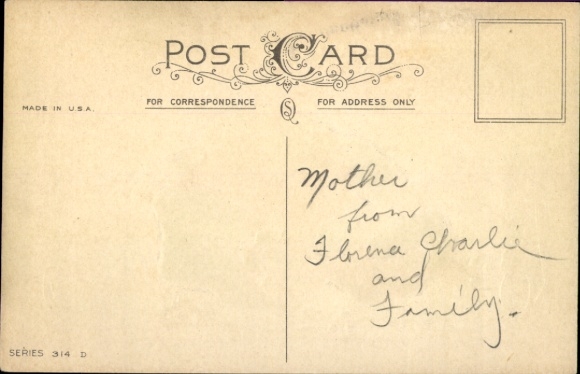 POST CARD
FOR CORRESPONDENCE
FOR ADDRESS ONLY
MADE IN U.S.A.
Mother
from
Florence Charlie
and
Family.
SERIES 314 D